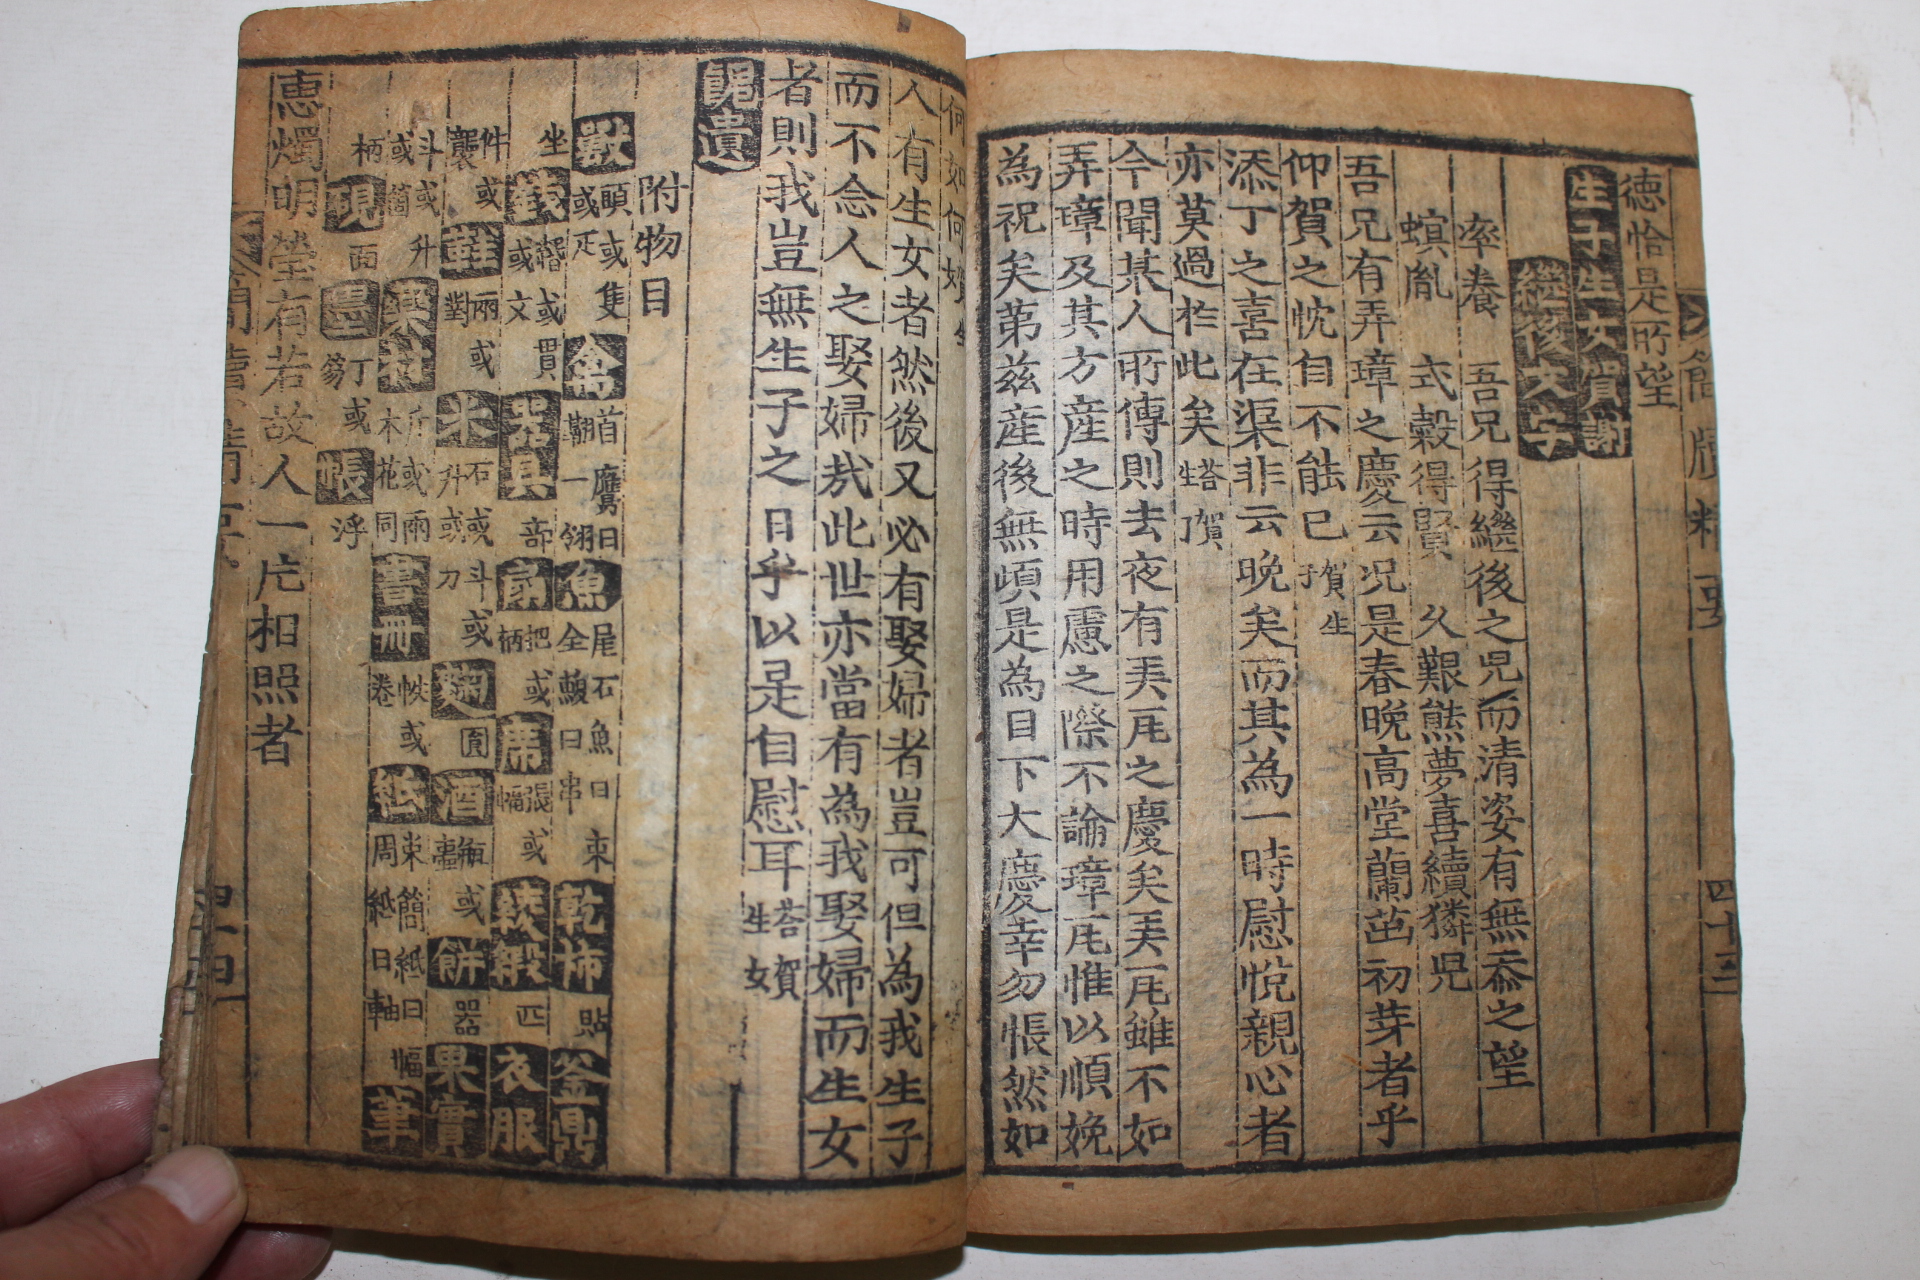 簡牘精要 四十三
德恰是所望
生子生女賀謝
繼後文字
率養 吾兄得繼後之児而清姿有無忝之望
螟胤 式穀得賢 久艱熊夢喜續獜児
吾兄有弄璋之慶云况是春晩高堂蘭茁初芽者乎
仰賀之忱自不能已 賀生子
添丁之喜在渠非云晩矣而其為一時慰悅親心者
亦莫過於此矣 答賀生子
今聞某人所傳則去夜有弄瓦之慶矣弄瓦雖不如
弄璋及其方產之時用慮之際不論璋瓦惟以順娩
為祝矣苐茲產後無頉是為目下大慶幸勿悵然如
何如何 婿
人有生女者然後又必有娶婦者豈可但為我生子
而不念人之娶婦㢤此世亦當有為我娶婦而生女
者則我豈無生子之日乎以是自慰耳 答賀生女
餽遺
附物目
獸 頭或隻或疋 禽 首鷹曰一翮翎 魚 尾石魚曰束全鰒曰串 乾柿 貼 釜鼎
坐 或貫或文 器具 部 扇 把或柄 席 張或幅 匹 衣服
件或襲 兩或對 米 石或斗或升或刀 圓 酒 壺或 餅 器 果實
斗或升或 斤或兩木花同 書冊 帙或卷 紙 束簡紙曰幅周紙曰軸 筆
柄 硯 面 墨 丁或笏 帳 浮
惠燭明瑩有若故人一片相照者
簡牘精要 四十四